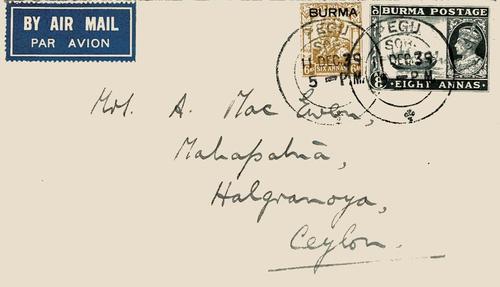 BY AIR MAIL
PAR AVION
BURMA
SIX ANNAS
BURMA POSTAGE
EIGHT ANNAS
PEGU
11 DEC. 39
5 - P.M.
PEGU
11 DEC. 39
5 - P.M.
Mrs. A. Mac Ewen,
Mahapatna,
Halgranoya,
Ceylon.